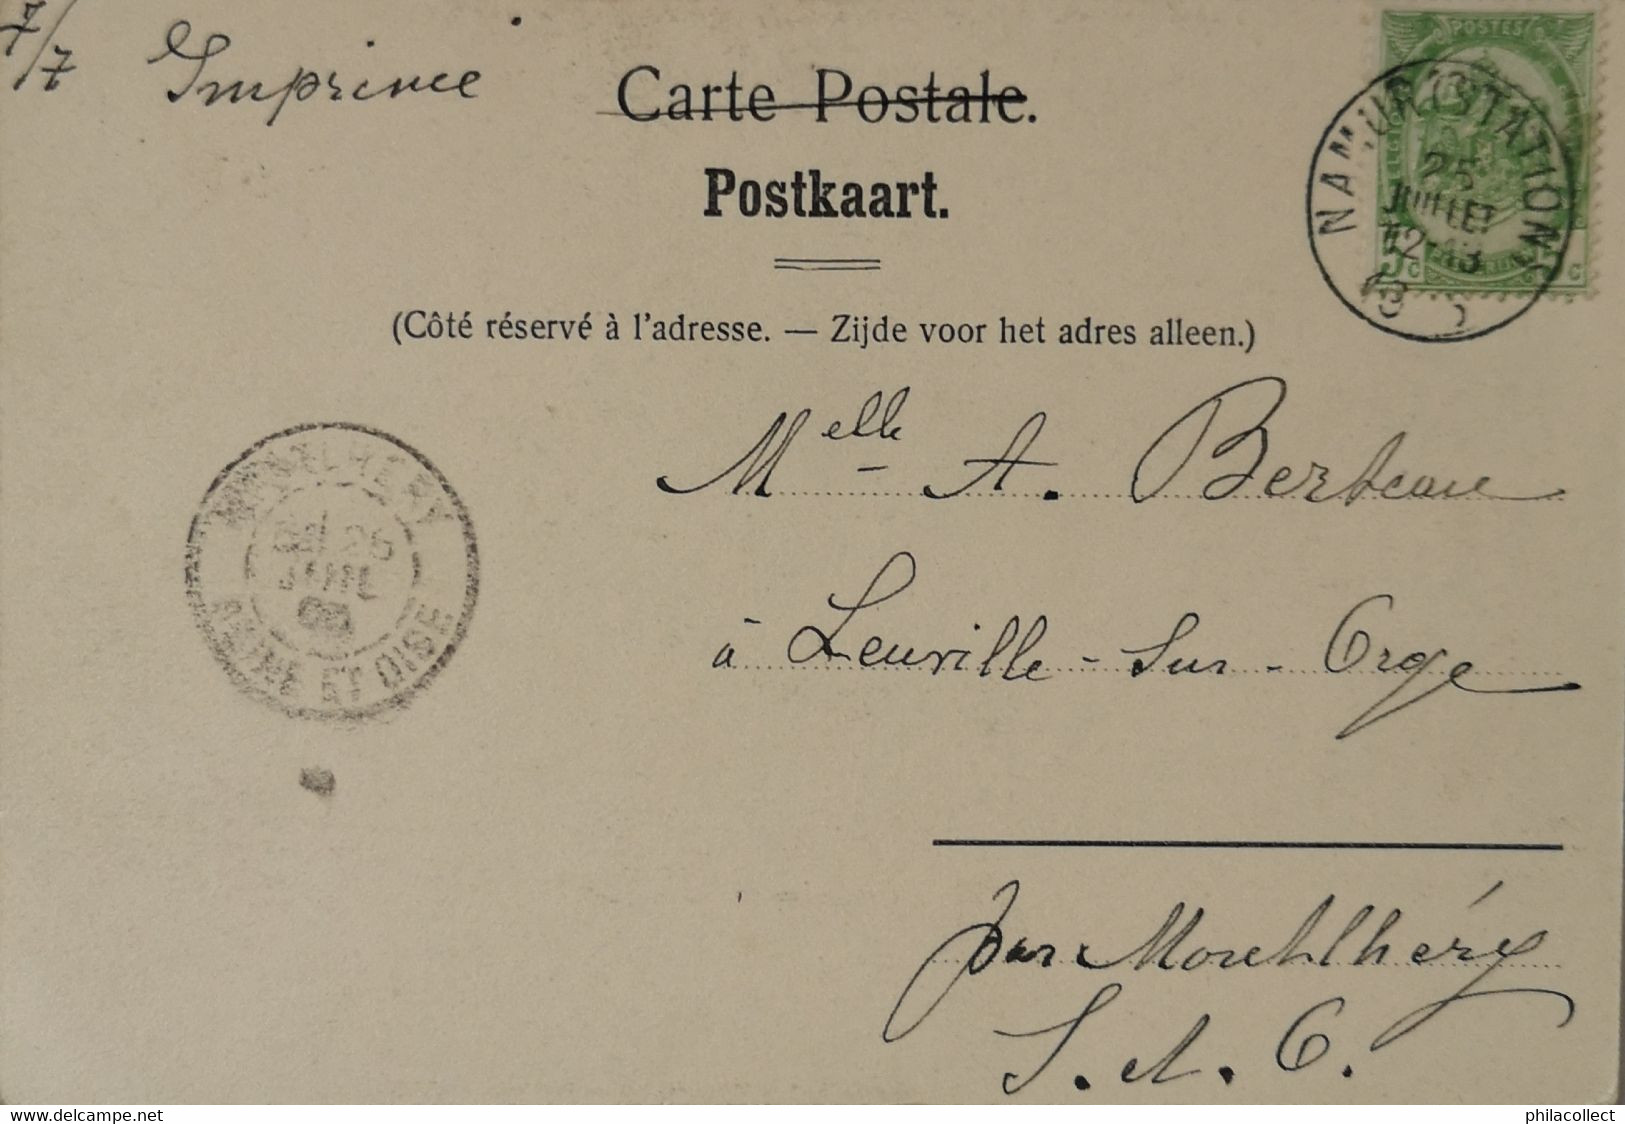 7/7 Imprimé
Carte Postale.
Postkaart.
(Côté réservé à l'adresse. — Zijde voor het adres alleen.)
POSTES
NAMUR (STATION)
25
JUILLET
12-13
5 c c
MONTLHERY
26
JUIL
SEINE ET OISE
Melle A. Berteaux
à Leuville-sur-Orge
par Montlhéry
S. et O.
www.delcampe.net
philacollect